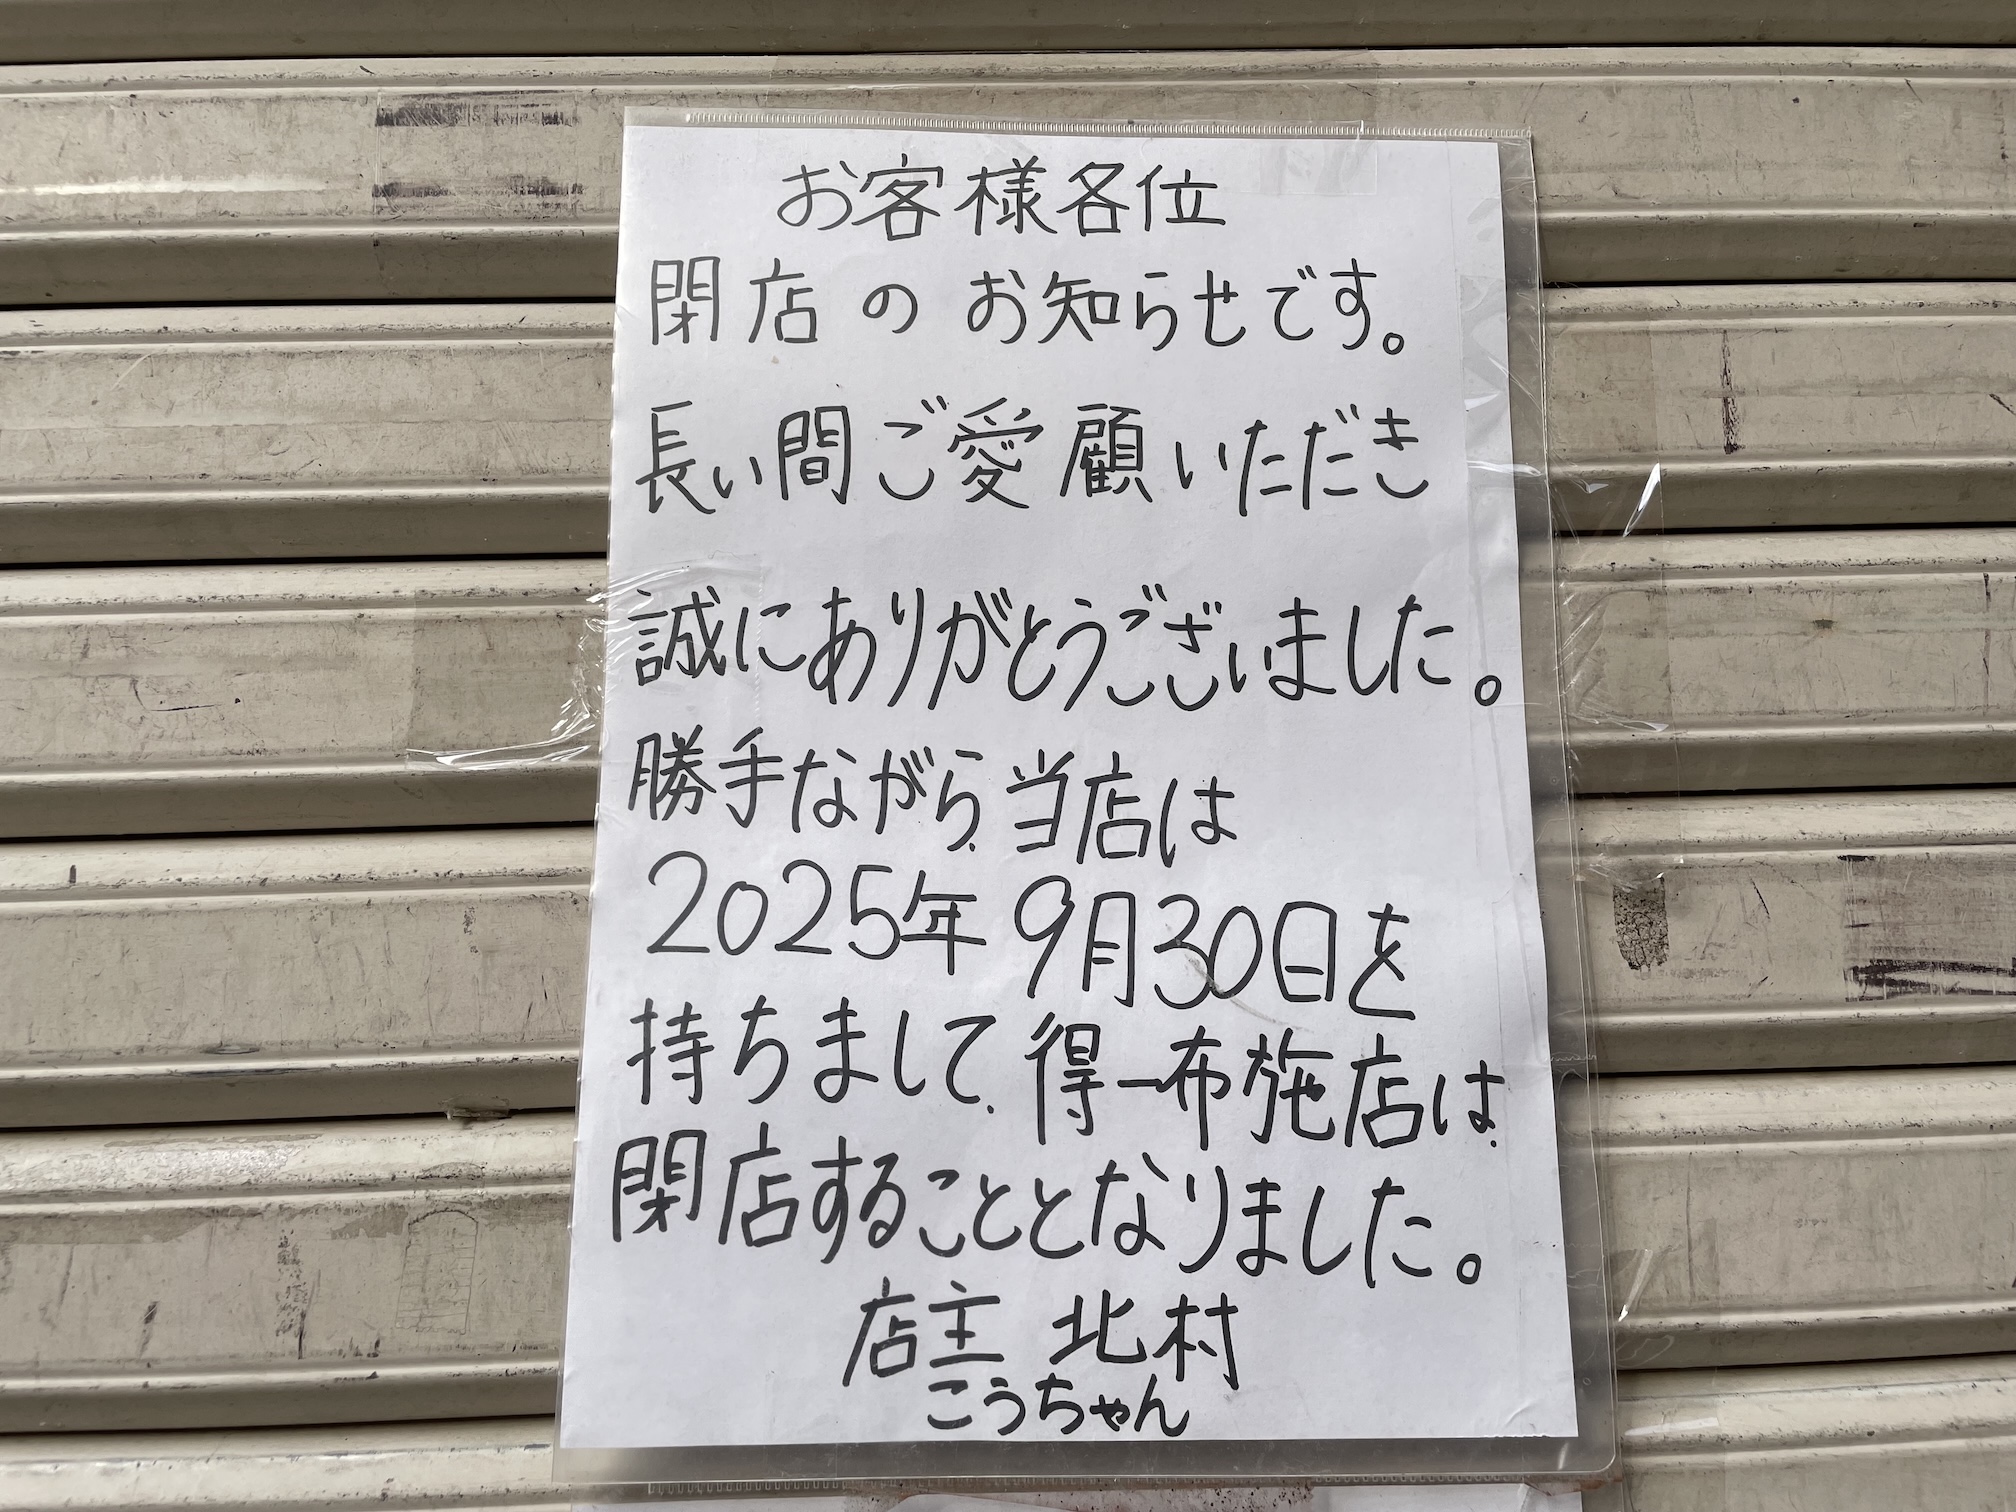 お客様各位
閉店のお知らせです。
長い間ご愛顧いただき
誠にありがとうございました。
勝手ながら、当店は
2025年9月30日を
持ちまして、得一布施店は、
閉店することとなりました。
店主 北村
こうちゃん